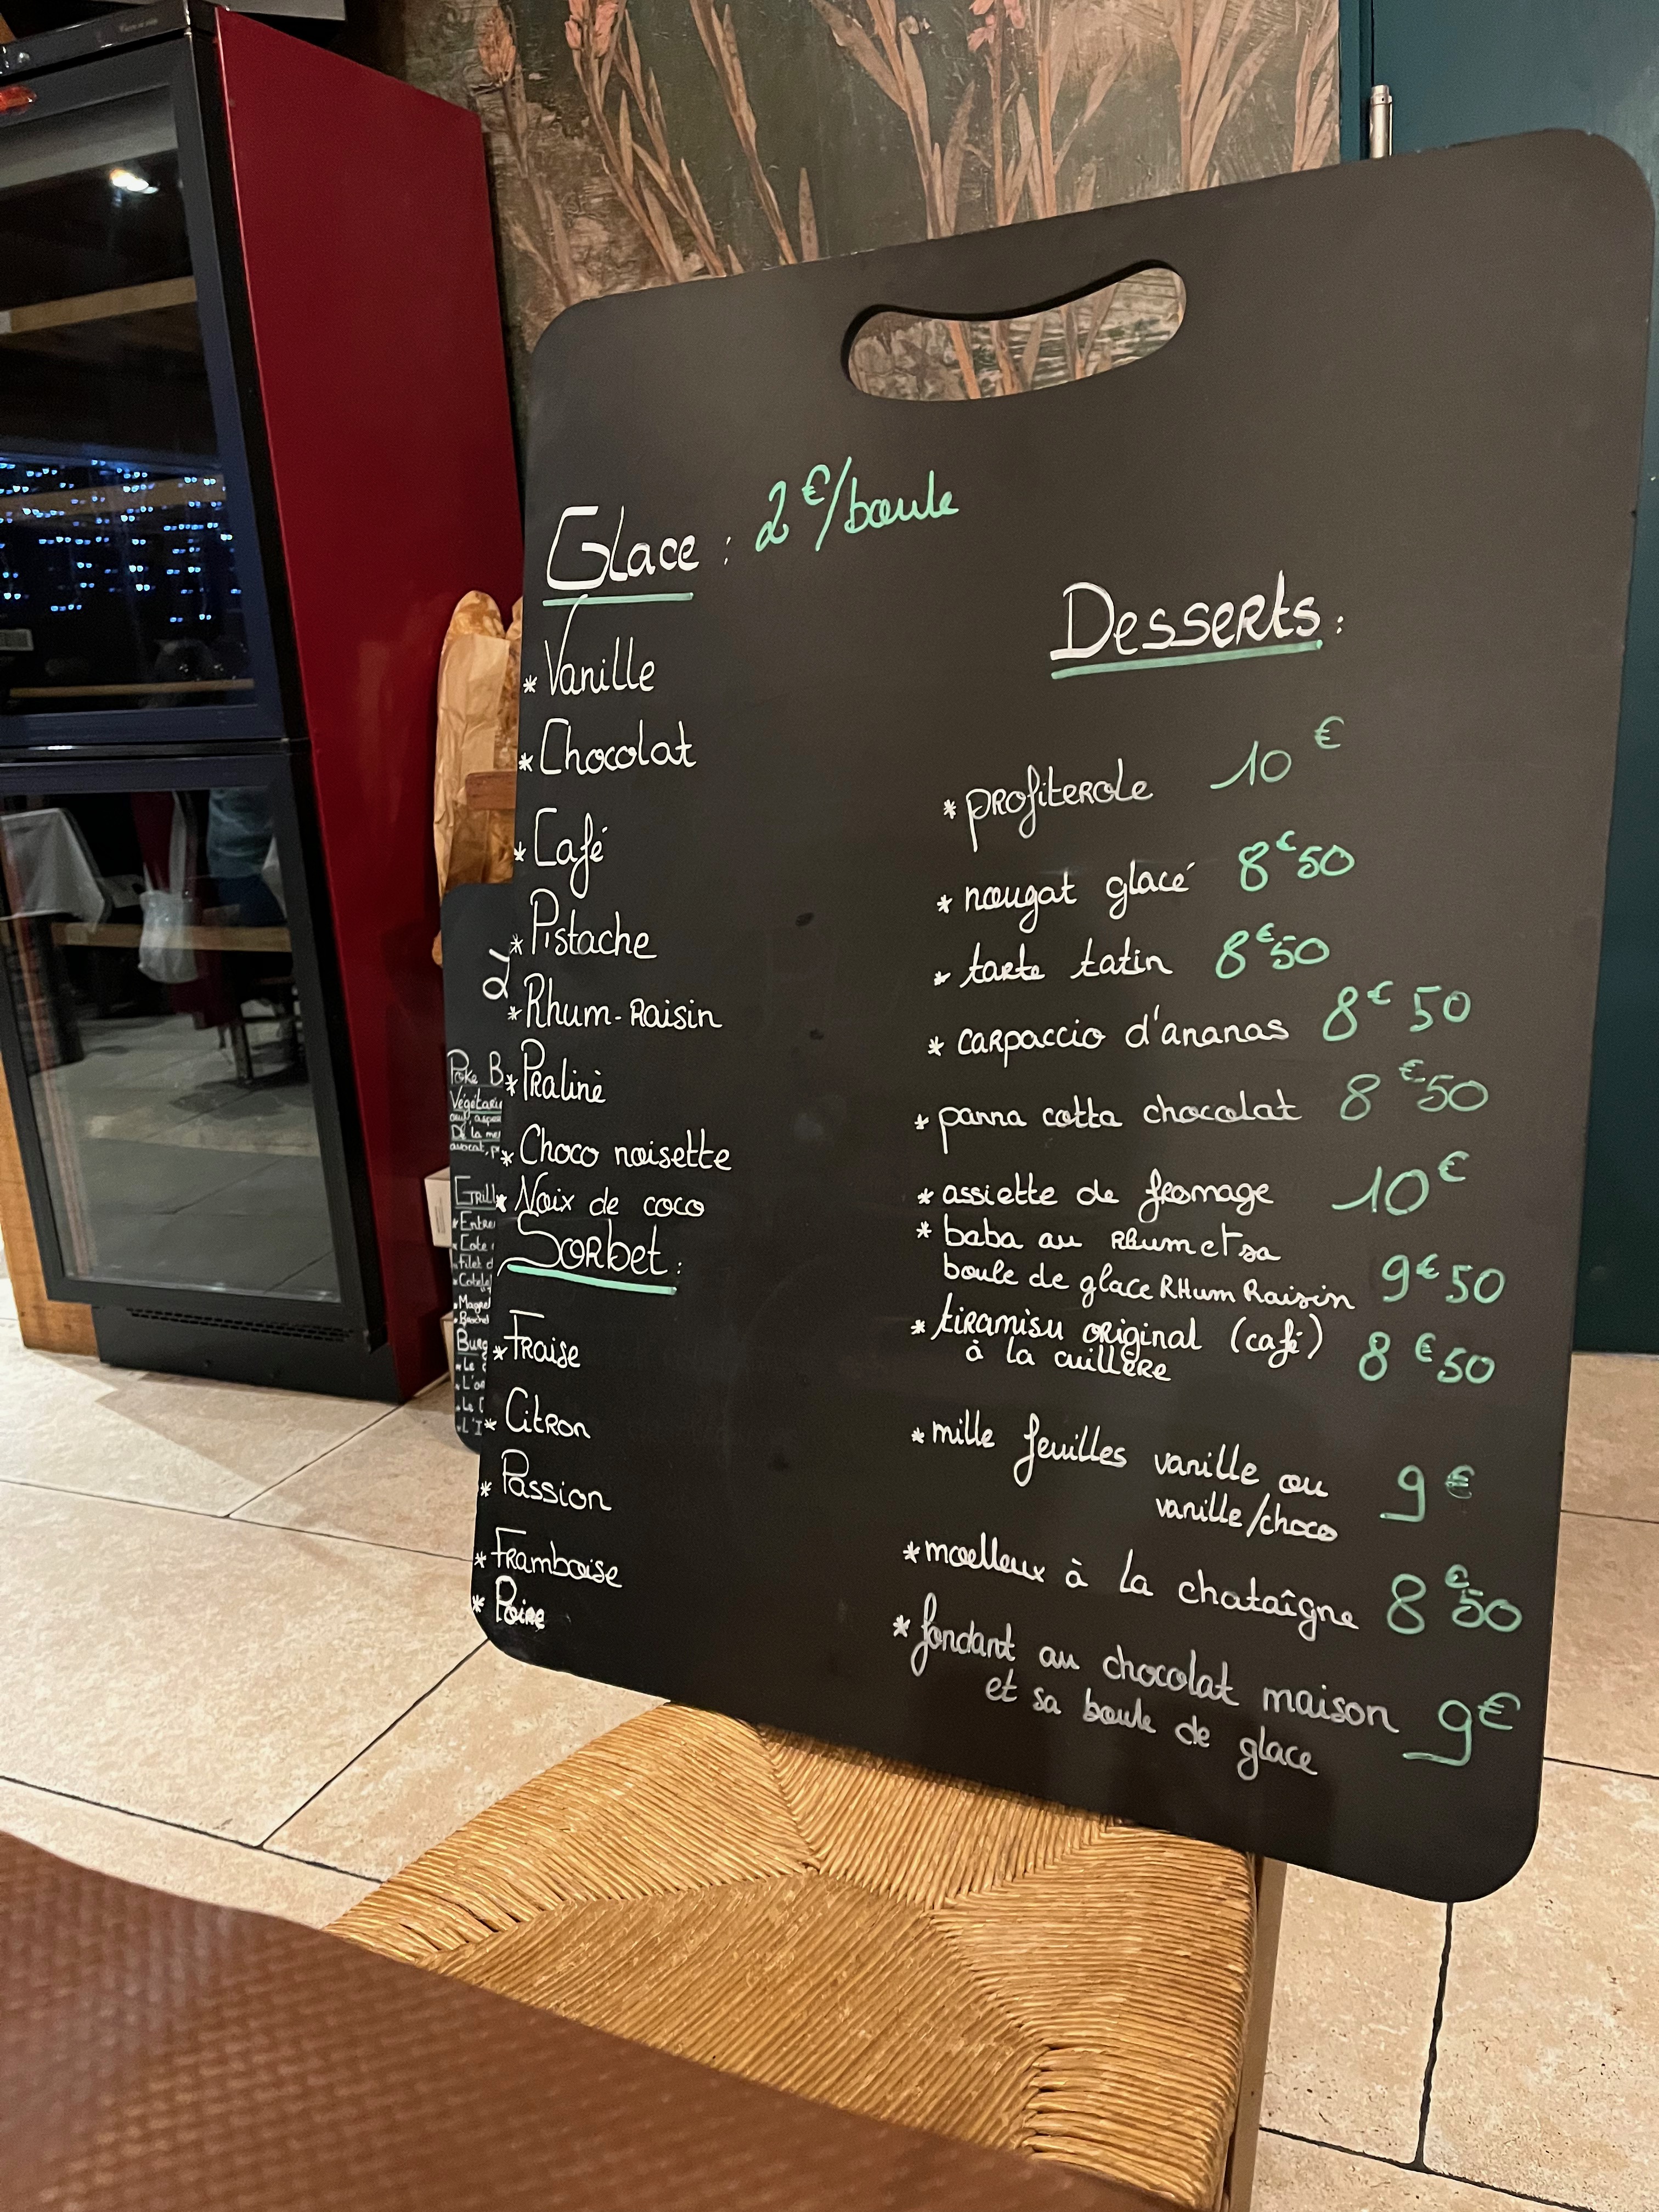 Glace : 2€/boule
* Vanille
* Chocolat
* Café
* Pistache
* Rhum-Raisin
* Pralinè
* Choco noisette
* Noix de coco
Sorbet :
* Fraise
* Citron
* Passion
* Framboise
* Poire
Desserts :
* profiterole 10 €
* nougat glacé 8€50
* tarte tatin 8€50
* carpaccio d'ananas 8€50
* panna cotta chocolat 8€50
* assiette de fromage 10€
* baba au Rhum et sa
boule de glace RHum Raisin 9€50
* tiramisu original (café)
à la cuillère 8€50
* mille feuilles vanille ou
vanille/choco 9€
* moelleux à la chataîgne 8€50
* fondant au chocolat maison
et sa boule de glace 9€
Poke B
Végétari
De la me
avocat, p
Grill
* Entre
* Cote
* Filet d
* Magret
Burg
* Le
* L'
* Le
* L'